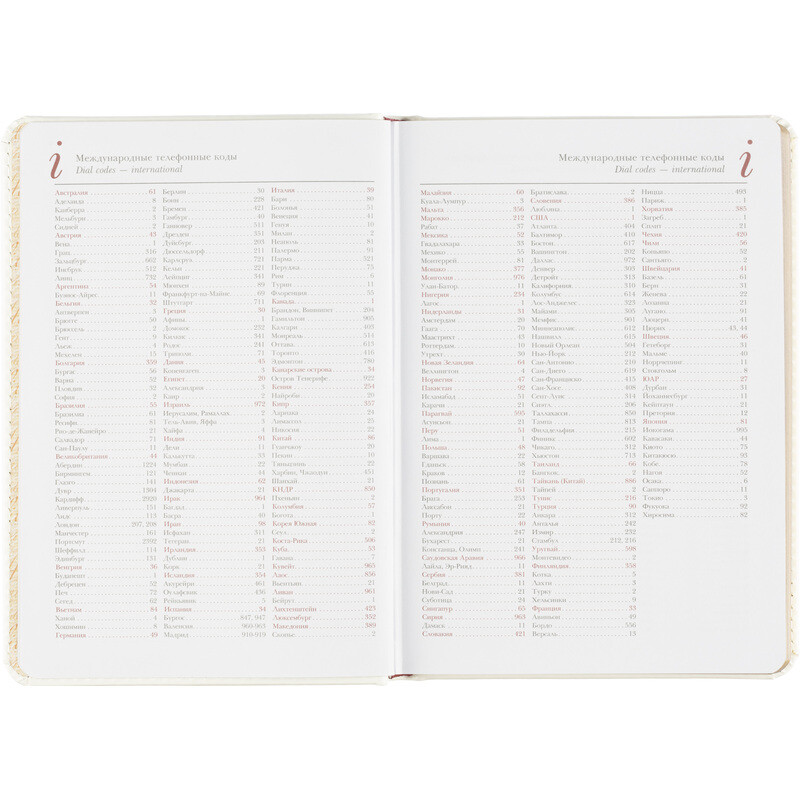 i
Международные телефонные коды
Dial codes — international
Австралия 61
Аделаида 8
Канберра 2
Мельбурн 3
Сидней 2
Австрия 43
Вена 1
Грац 316
Зальцбург 662
Инсбрук 512
Линц 732
Аргентина 54
Буэнос-Айрес 11
Бельгия 32
Антверпен 3
Брюгге 50
Брюссель 2
Гент 9
Льеж 4
Мехелен 15
Болгария 359
Варна 52
Пловдив 32
София 2
Бразилия 55
Бразилиа 61
Ресифи 81
Рио-де-Жанейро 21
Салвадор 71
Сан-Паулу 11
Великобритания 44
Абердин 1224
Бирмингем 121
Глазго 141
Дувр 1304
Кардифф 2920
Ливерпуль 151
Лидс 113
Лондон 207, 208
Манчестер 161
Портсмут 2392
Шеффилд 114
Эдинбург 131
Венгрия 36
Будапешт 1
Дебрецен 52
Печ 72
Сегед 62
Вьетнам 84
Ханой 4
Хошимин 8
Германия 49
Берлин 30
Бонн 228
Бремен 421
Гамбург 40
Ганновер 511
Дрезден 351
Дуйсбург 203
Дюссельдорф 211
Карлсруэ 721
Кельн 221
Лейпциг 341
Мюнхен 89
Франкфурт-на-Майне 69
Штутгарт 711
Греция 30
Афины 1
Родос 241
Дания 45
Копенгаген 3
Египет 20
Александрия 3
Каир 2
Израиль 972
Иерусалим, Рамаллах 2
Тель-Авив, Яффа 3
Хайфа 4
Индия 91
Дели 11
Калькутта 33
Мумбаи 22
Ченнаи 44
Индонезия 62
Джакарта 21
Ирак 964
Багдад 1
Басра 40
Иран 98
Исфахан 311
Тегеран 21
Ирландия 353
Дублин 1
Корк 21
Исландия 354
Акурейри 461
Рейкьявик 5
Испания 34
Бургос 847, 947
Валенсия 960-963
Мадрид 910-919
Италия 39
Бари 80
Болонья 51
Венеция 41
Генуя 10
Милан 2
Неаполь 81
Палермо 91
Парма 521
Перуджа 75
Рим 6
Турин 11
Флоренция 55
Канада 1
Брандон, Виннипег 204
Гамильтон 905
Калгари 403
Монреаль 514
Оттава 613
Торонто 416
Эдмонтон 780
Канарские острова 34
Остров Тенерифе 922
Кения 254
Найроби 20
Кипр 357
Ларнака 24
Лимассол 25
Никосия 22
Китай 86
Гуанчжоу 20
Пекин 10
Тяньцзинь 22
Харбин, Чжанцзяо 451
Шанхай 21
КНДР 850
Пхеньян 2
Колумбия 57
Богота 1
Корея Южная 82
Сеул 2
Коста-Рика 506
Куба 53
Гавана 7
Кувейт 965
Лаос 856
Вьентьян 21
Ливан 961
Бейрут 1
Лихтенштейн 423
Люксембург 352
Македония 389
Скопье 2
Международные телефонные коды
Dial codes — international
i
Малайзия 60
Куала-Лумпур 3
Мальта 356
Марокко 212
Рабат 37
Мексика 52
Гвадалахара 33
Мехико 55
Монтеррей 81
Монако 377
Монголия 976
Улан-Батор 11
Нигерия 234
Лагос 1
Нидерланды 31
Амстердам 20
Гаага 70
Маастрихт 43
Роттердам 10
Утрехт 30
Новая Зеландия 64
Веллингтон 4
Норвегия 47
Пакистан 92
Исламабад 51
Карачи 21
Парагвай 595
Асунсьон 21
Перу 51
Лима 1
Польша 48
Варшава 22
Гданьск 58
Краков 12
Познань 61
Португалия 351
Брага 253
Лиссабон 21
Порту 22
Румыния 40
Бухарест 21
Констанца 241
Саудовская Аравия 966
Эр-Рияд 11
Сербия 381
Белград 11
Нови-Сад 21
Суботица 24
Сингапур 65
Сирия 963
Дамаск 11
Словакия 421
Братислава 2
Словения 386
Любляна 1
США 1
Атланта 404
Балтимор 410
Бостон 617
Вашингтон 202
Даллас 972
Денвер 303
Детройт 313
Калифорния 310
Колумбус 614
Лос-Анджелес 323
Майами 305
Мемфис 901
Миннеаполис 612
Нашвилл 615
Новый Орлеан 504
Нью-Йорк 212
Сан-Антонио 210
Сан-Диего 619
Сан-Франциско 415
Сан-Хосе 408
Сент-Луис 314
Сиэтл 206
Таллахасси 850
Тампа 813
Филадельфия 215
Финикс 602
Чикаго 312
Хьюстон 713
Таиланд 66
Бангкок 2
Тайвань (Китай) 886
Тайбей 2
Тунис 216
Турция 90
Анкара 312
Анталья 242
Измир 232
Стамбул 212, 216
Уругвай 598
Монтевидео 2
Финляндия 358
Котка 5
Лахти 3
Турку 2
Хельсинки 9
Франция 33
Авиньон 49
Бордо 556
Версаль 13
Ницца 493
Париж 1
Хорватия 385
Загреб 1
Сплит 21
Чехия 420
Чили 56
Консепсьон 52
Сантьяго 2
Швейцария 41
Базель 61
Берн 31
Женева 22
Лозанна 21
Лугано 91
Люцерн 41
Цюрих 43, 44
Швеция 46
Гетеборг 31
Мальме 40
Норрчепинг 11
Стокгольм 8
ЮАР 27
Дурбан 31
Йоханнесбург 11
Кейптаун 21
Претория 12
Япония 81
Иокогама 995
Кавасаки 44
Киото 75
Китакюсю 93
Кобе 78
Нагоя 52
Осака 6
Саппоро 11
Токио 3
Фукуока 92
Хиросима 82